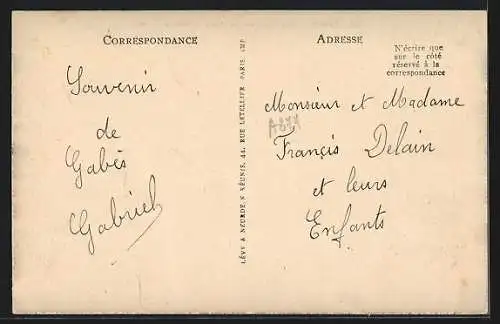 CORRESPONDANCE
Souvenir
de
Gabès
Gabriel
LÉVY & NEURDEIN RÉUNIS, 44, RUE LETELLIER, PARIS IMP
ADRESSE
N'écrire que
sur le côté
réservé à la
correspondance
Monsieur et Madame
Francis Delain
et leurs
Enfants